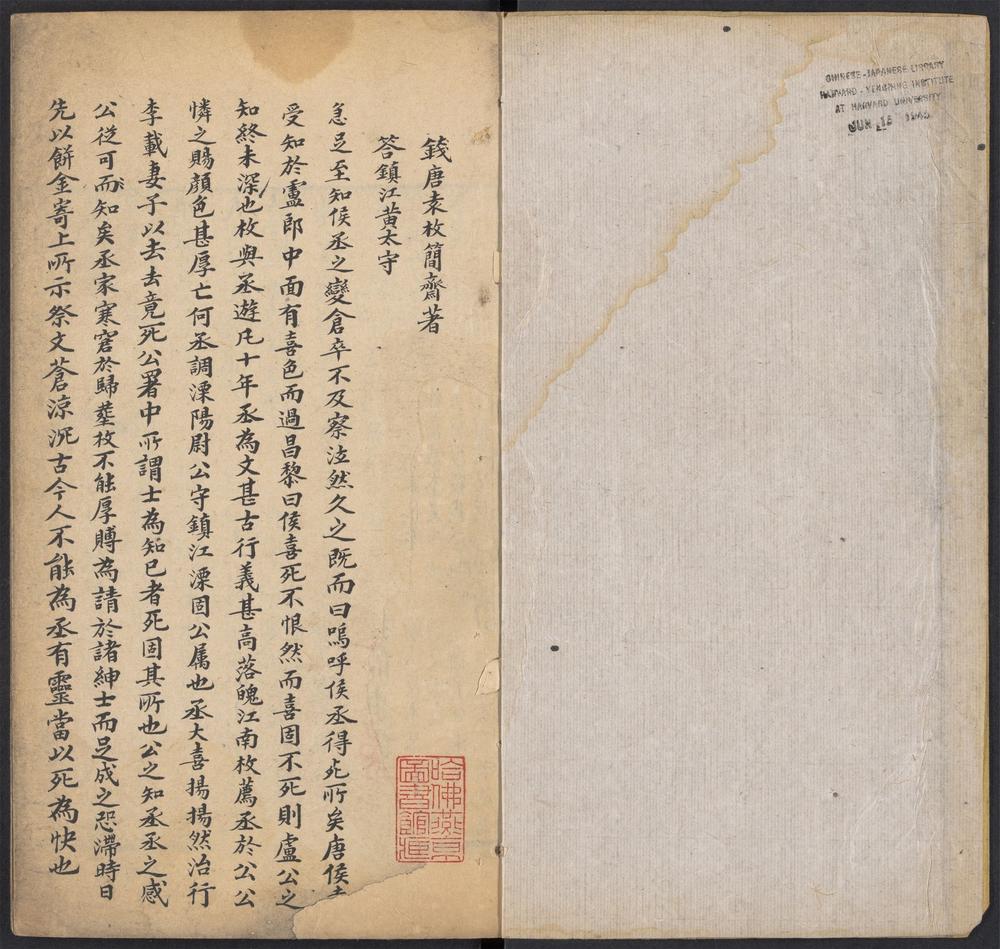 錢唐袁枚簡齋著
答鎮江黃太守
急足至知侯丞之變倉卒不及察泫然久之既而曰嗚呼侯丞得死所矣唐侯喜
受知於盧郎中面有喜色而過昌黎曰侯喜死不恨然而喜固不死則盧公之
知終未深也枚與丞遊凡十年丞為文甚古行義甚高落魄江南枚薦丞於公公
憐之賜顏色甚厚亡何丞調溧陽尉公守鎮江溧固公属也丞大喜揚揚然治行
李載妻子以去去竟死公署中所謂士為知已者死固其所也公之知丞丞之感
公從可而知矣丞家寒窘於歸塟枚不能厚賻為請於諸紳士而足成之恐滯時日
先以餅金寄上所示祭文蒼涼沉古今人不能為丞有靈當以死為快也
哈佛燕京
圖書館藏
CHINESE-JAPANESE LIBRARY
HARVARD-YENCHING INSTITUTE
AT HARVARD UNIVERSITY
JUN 15